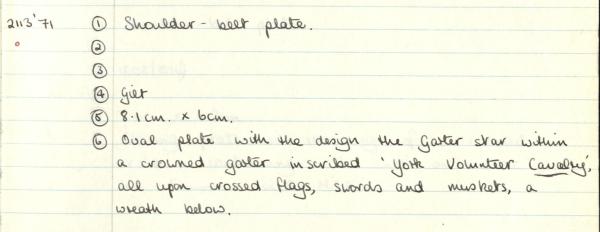 2113'71 ① Shoulder-belt plate.
②
③
④ Gilt
⑤ 8.1cm. x 6cm.
⑥ Oval plate with the design the Garter star within
a crowned garter inscribed 'York Volunteer Cavalry',
all upon crossed flags, swords and muskets, a
wreath below.